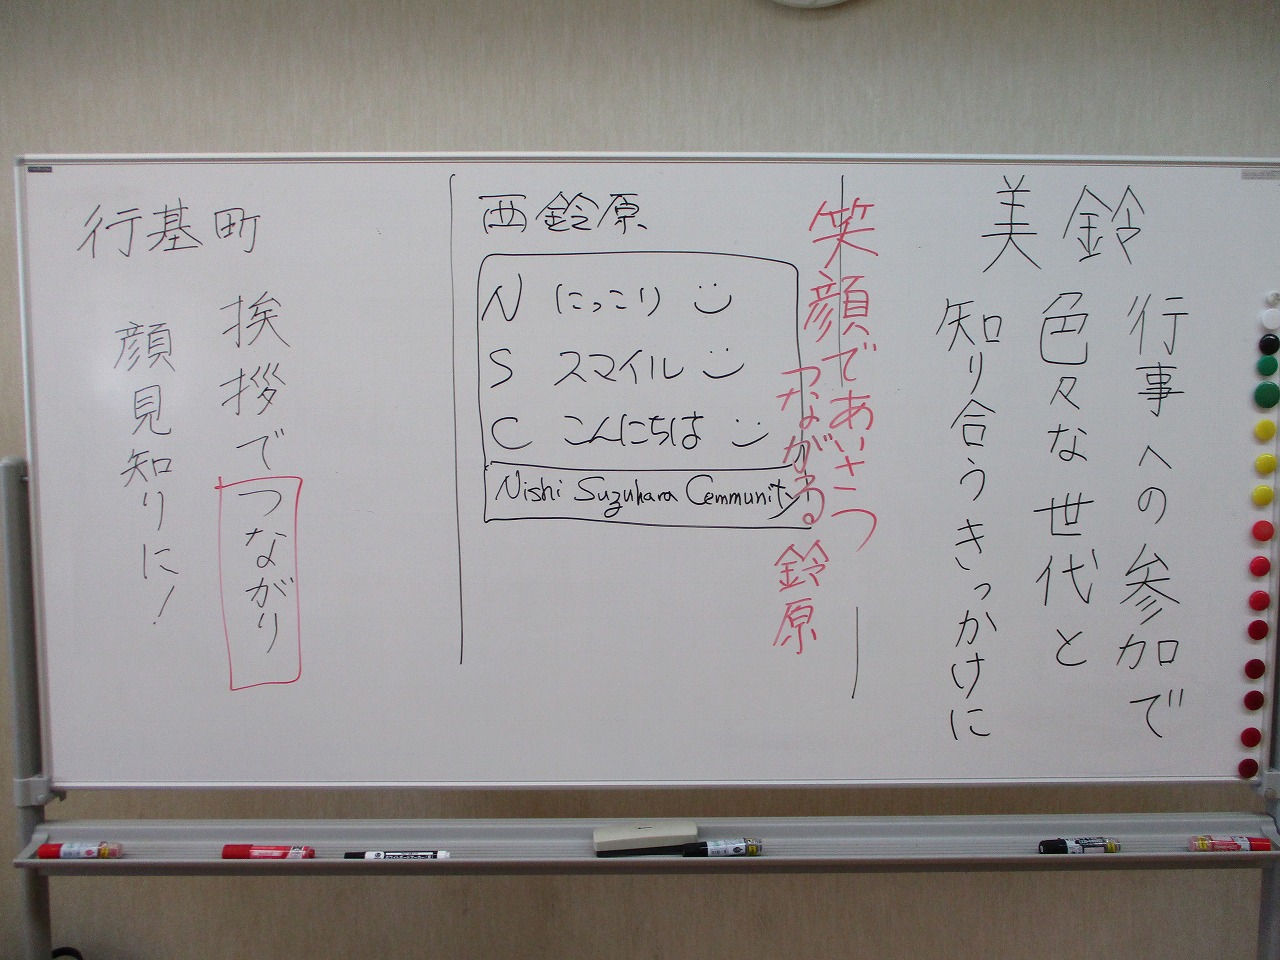 美鈴
行事への参加で
色々な世代と
知り合うきっかけに
笑顔であいさつ
つながる。鈴原
西鈴原
N にっこり
S スマイル
C こんにちは
Nishi Suzuhara Cemmunity
行基町
挨拶でつながり
顔見知りに!